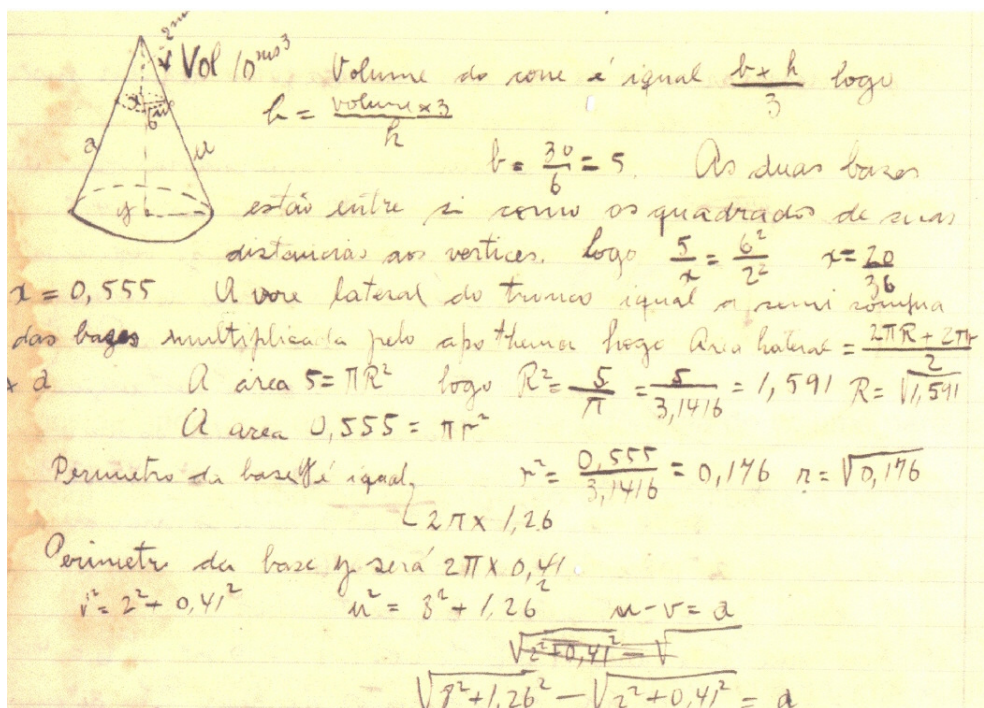 2m
Vol 10 ms³ Volume do cone é igual b × h / 3 logo
h = volume × 3 / h
x 6m
a u
b = 30/6 = 5. As duas bases
y estão entre si como os quadrados de suas
distancias aos vertices. Logo 5/x = 6²/2² x = 20/36
x = 0,555 A lateral do tronco igual a semi somma
das bases multiplicada pelo apothema logo Area lateral = 2πR + 2πr / 2
× a A área 5 = πR² logo R² = 5/π = 5/3,1416 = 1,591 R = √1,591
A area 0,555 = πr²
Perimetro da base y é igual r² = 0,555/3,1416 = 0,176 r = √0,176
2π × 1,26
Perimetro da base y será 2π × 0,41.
v² = 2² + 0,41² u² = 3² + 1,26² u - v = a
√2² + 0,41² - √
√8² + 1,26² - √2² + 0,41² = a